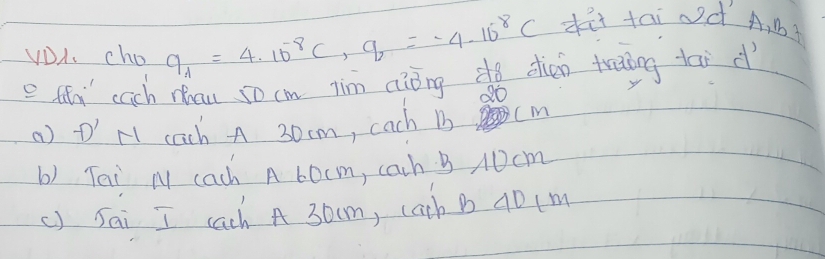 VD1. Cho q₁ = 4.10⁻⁸ C, q₂ = -4.10⁸ C đặt tại 2 đ' A, B
cách nhau 50 cm tìm cường độ điện trường tại đ'
a) Đ' M cách A 30cm, cách B 20 cm
b) Tại N cách A 60cm, cách B 10cm
c) Tại I cách A 30cm, cách B 40cm